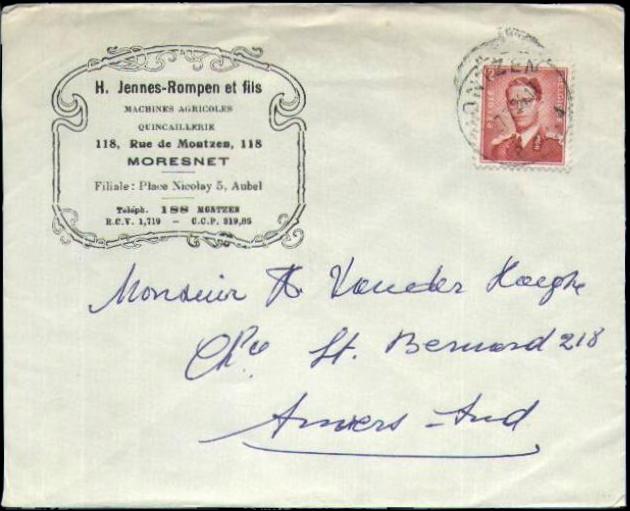 H. Jennes-Rompen et fils
MACHINES AGRICOLES
QUINCAILLERIE
118, Rue de Montzen, 118
MORESNET
Filiale: Place Nicolay 5, Aubel
Téléph. 188 MONTZEN
R.C.V. 1,719 - C.C.P. 319,05
MONTZEN
Monsieur Vander Haeghe
Chée St. Bernard 218
Anvers-Sud